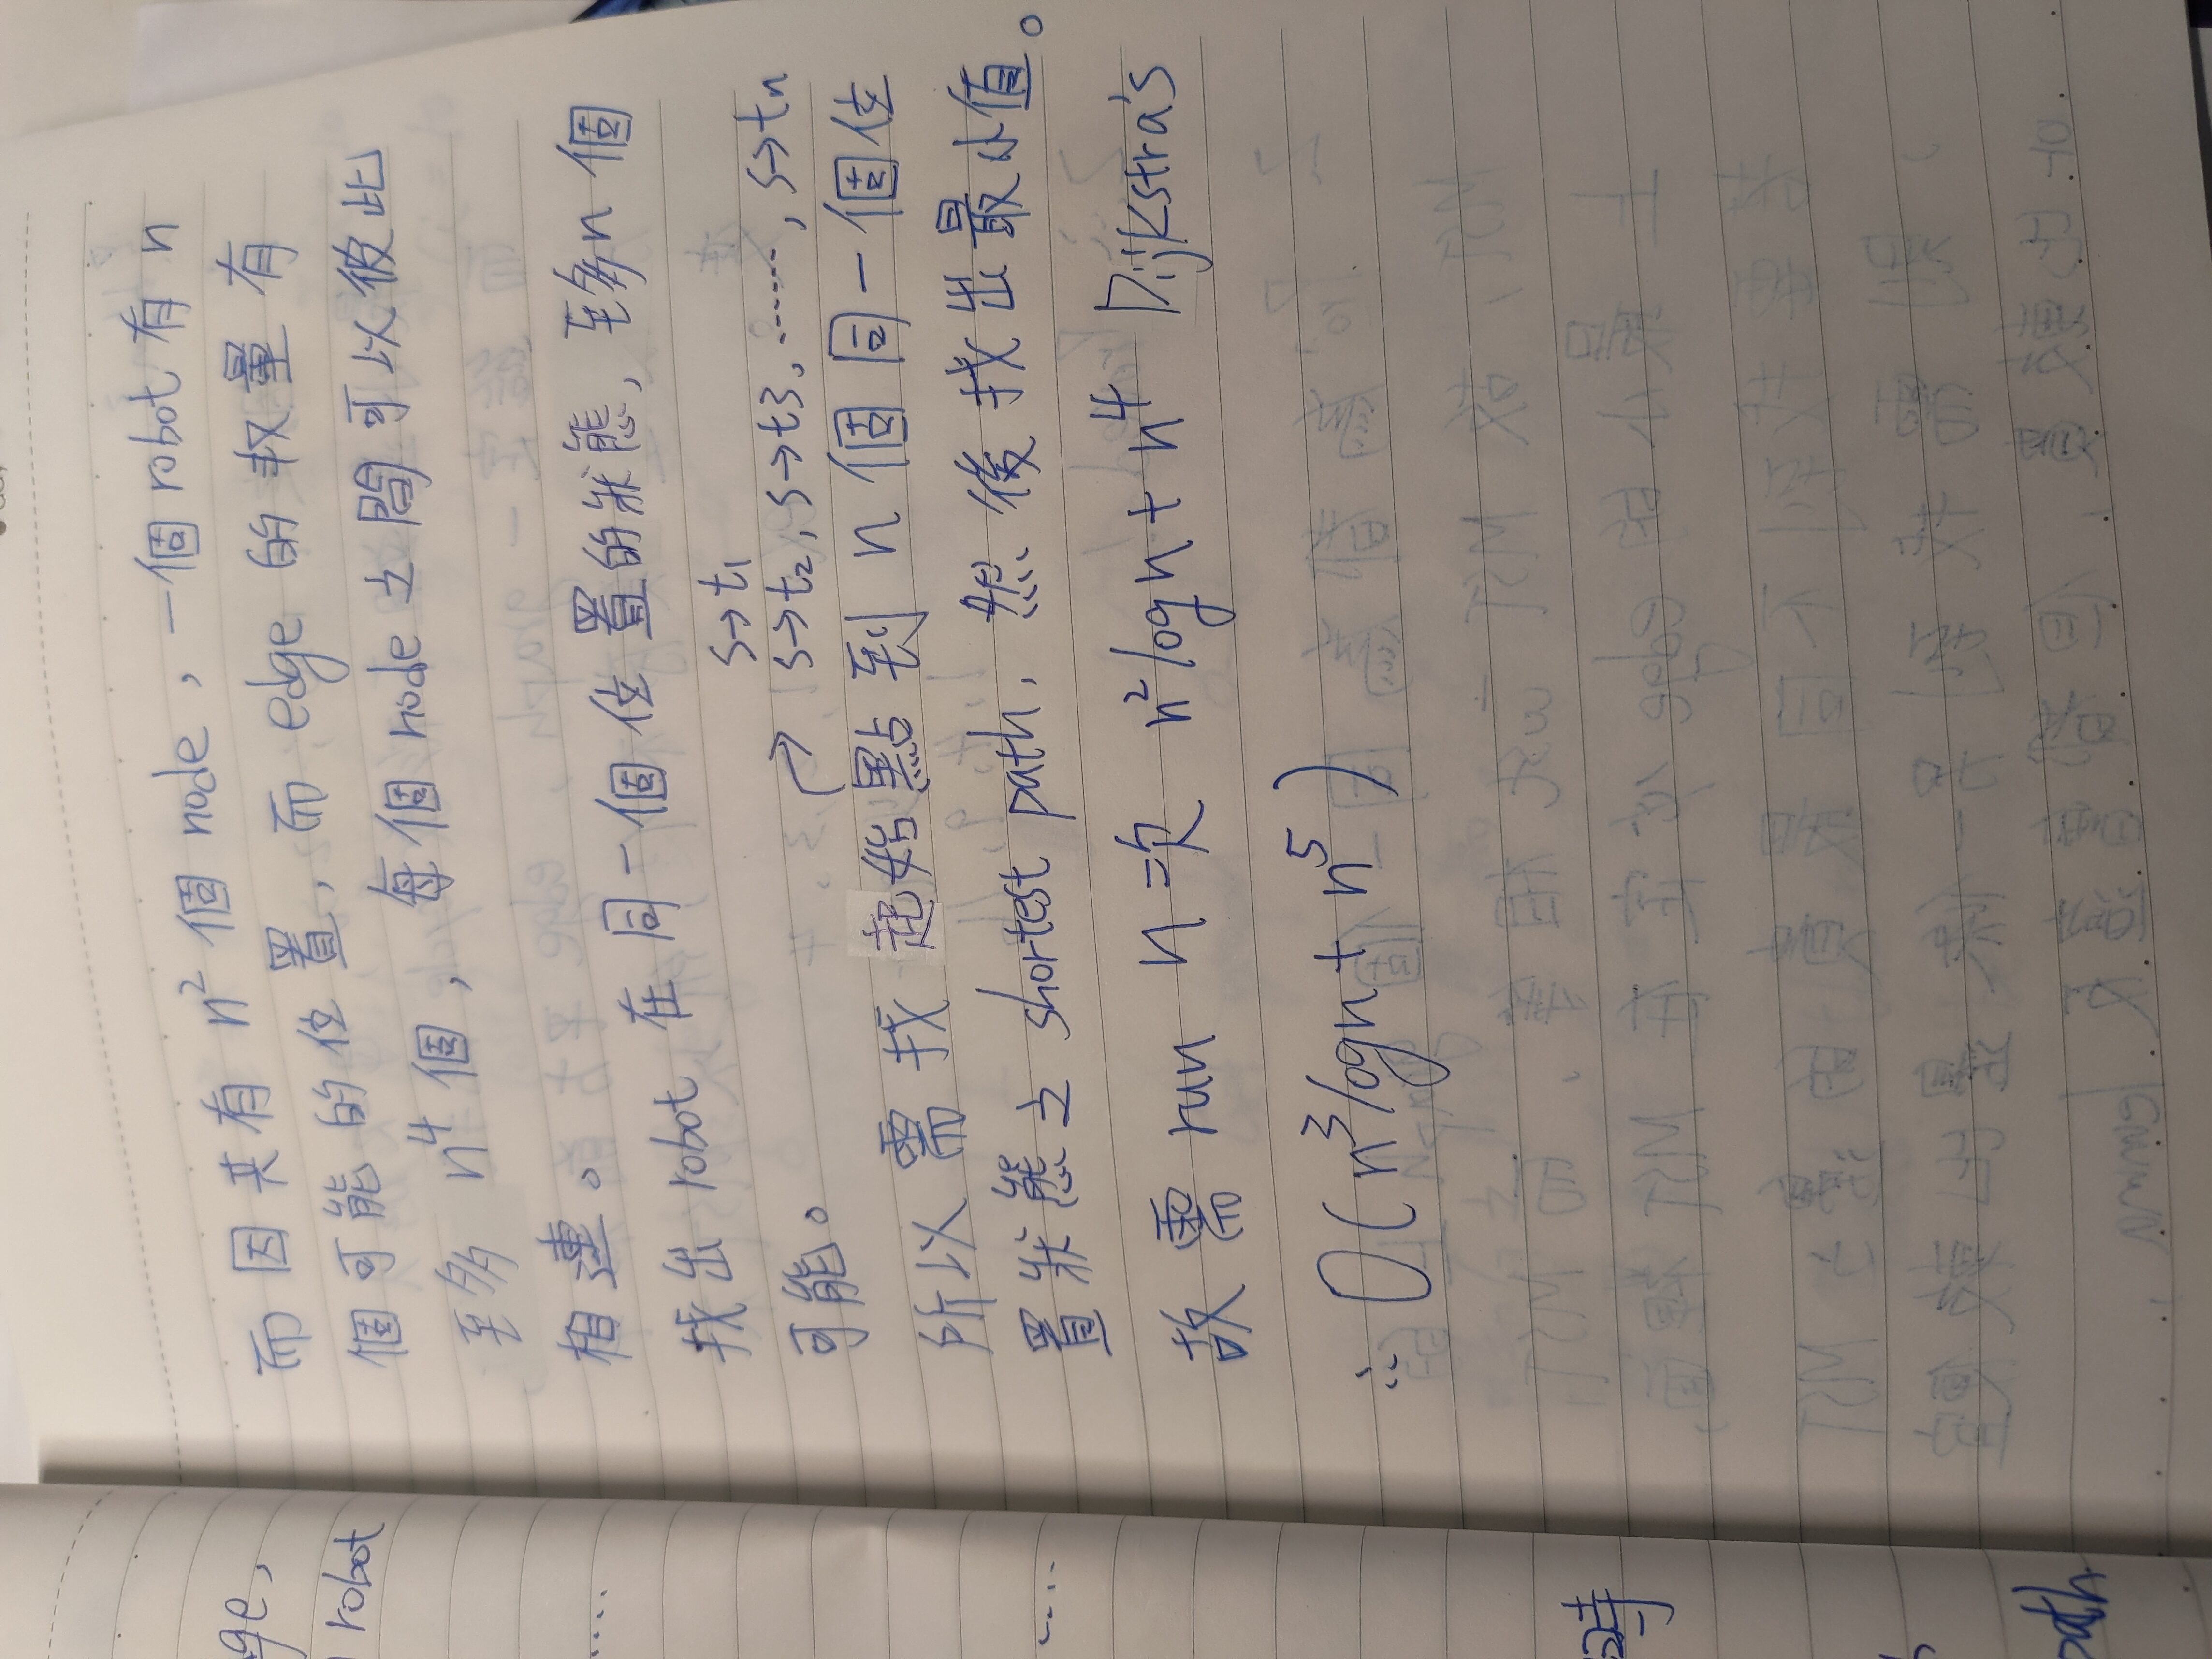 而因共有 n² 個 node，一個 robot 有 n
個可能的位置，而 edge 的权量有
至多 n⁴ 個，每個 node 之間可以彼此
相連。
找出 robot 在同一個位置的狀態，至多 n 個
可能。
s→t₁
s→t₂, s→t3, ......, s→tn
所以需找起始點到 n 個同一個位
置狀態之 shortest path，然後找出最小值。
故需 run n 次 n²logn + n⁴ Dijkstra's
∴ O(n³logn + n⁵)
ge,
robot
.....
.....
時
path